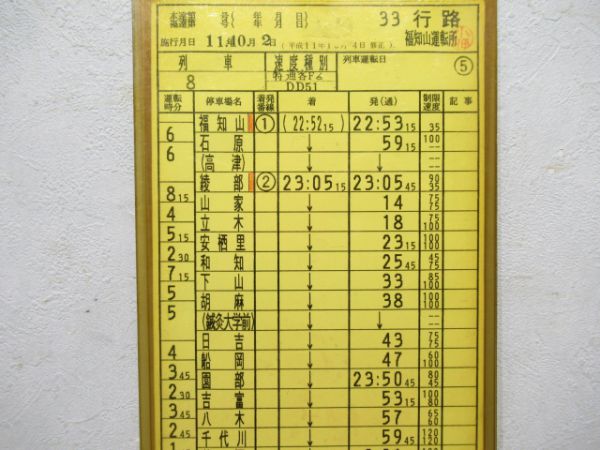 33 行路
施行月日 11.10.2日 (平成11年10月4日 修正) 福知山運転所
列車 速度種別 列車運転日 ⑤
8 特通客F2
DD51
運転時分 停車場名 着発番線 着 発(通) 制限速度 記事
福知山 ① (22:52 15) 22:53 15 35
6
石原 ↓ 59 15 100 --
6
(高津) ↓ ↓ -- --
綾部 ② 23:05 15 23:05 45 90 35
8 15
山家 ↓ 14 75 75
4
立木 ↓ 18 75 100
5 15
安栖里 ↓ 23 15 100 100
2 30
和知 ↓ 25 45 45 75
7 15
下山 ↓ 33 85 100
5
胡麻 ↓ 38 100 100
5
(鍼灸大学前) ↓ ↓ -- --
日吉 ↓ 43 75 75
4
船岡 ↓ 47 60 100
3 45
園部 ↓ 23:50 45 80 45
2 30
吉富 ↓ 53 15 100 80
3 45
八木 ↓ 57 65 60
2 45
千代川 ↓ 59 45 120 120